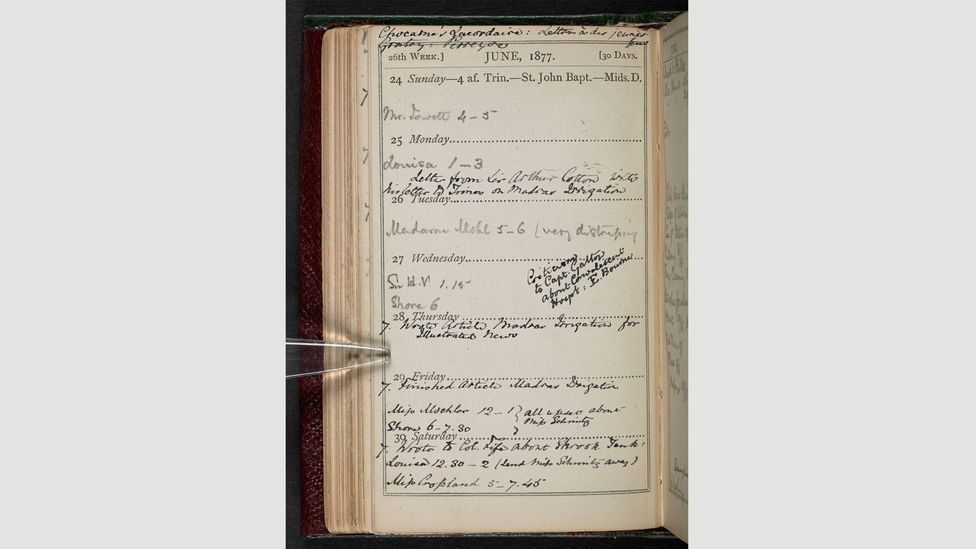 Chocarne's Lacordaire: Lettres à des jeunes gens
Gratry: Perreyve
26th Week.] JUNE, 1877. [30 Days.
24 Sunday—4 af. Trin.—St. John Bapt.—Mids. D.
Mr. Jowett 4-5
25 Monday
Louisa 1-3
Letter from Sir Arthur Cotton with
his letter to Times on Madras Irrigation
26 Tuesday
Madame Mohl 5-6 (very distressing
27 Wednesday
Criticisms
to Capt. Galton
about Convalescent
Hospl: E. Bourne
Sir H.V. 1.15
Shore 6
28 Thursday
7. Wrote Article Madras Irrigation for
Illustrated News
29 Friday
7. Finished Article Madras Irrigation
Miss Machlor 12-1 } all upset about
Shore 6-7.30 Miss Schmitz
30 Saturday
7. Wrote to Col. Fife about Tank:
Louisa 12.30-2 (send Miss Schmitz away)
Miss Crossland 5-7.45